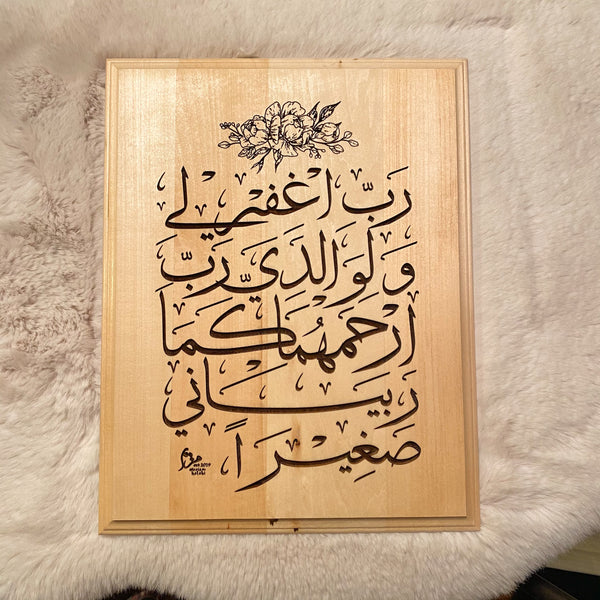 رَبِّ اغْفِرْ لِي
وَلِوَالِدَيَّ رَبِّ
ارْحَمْهُمَا كَمَا
رَبَّيَانِي
صَغِيرًا